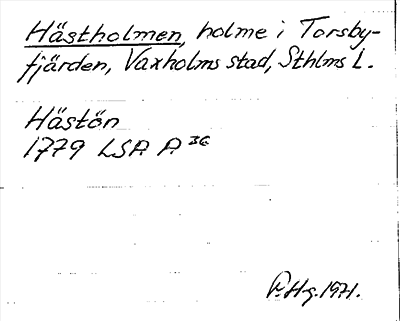 Hästholmen, holme i Torsby-
fjärden, Vaxholms stad, Sthlms L.
Hästön
1779 LSA A 36
F. Hg. 1971.